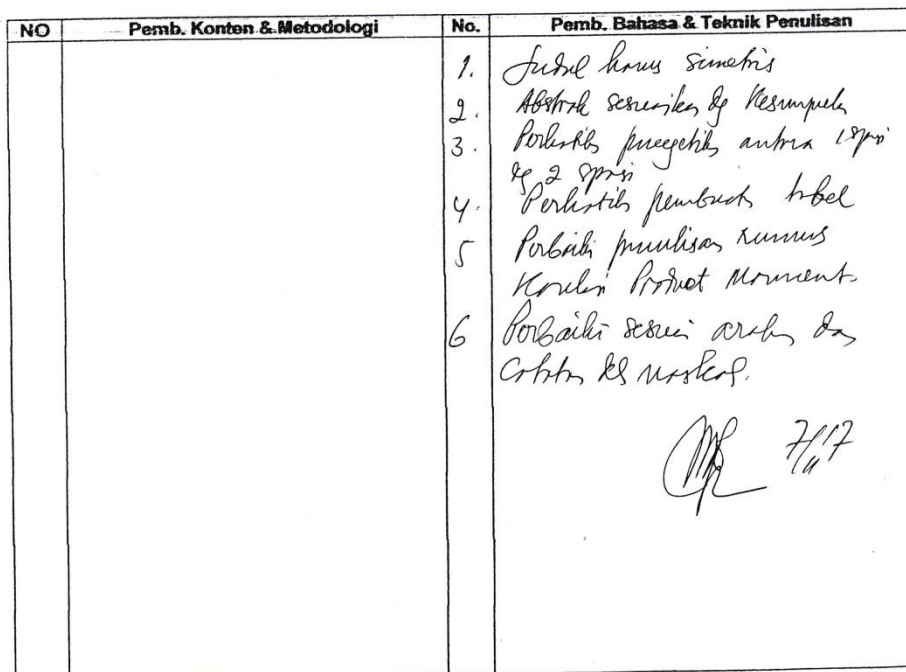 NO Pemb. Konten & Metodologi No. Pemb. Bahasa & Teknik Penulisan
1. Judul harus simetris
2. Abstrak sesuaikan dg Kesimpulan
3. Perhatikan pengetikan antara 1 spasi
dg 2 spasi
4. Perhatikan pembuatan tabel
5 Perbaiki penulisan rumus
Korelasi Product Moment
6 Perbaiki sesuai arahan dan
Catatan naskah.